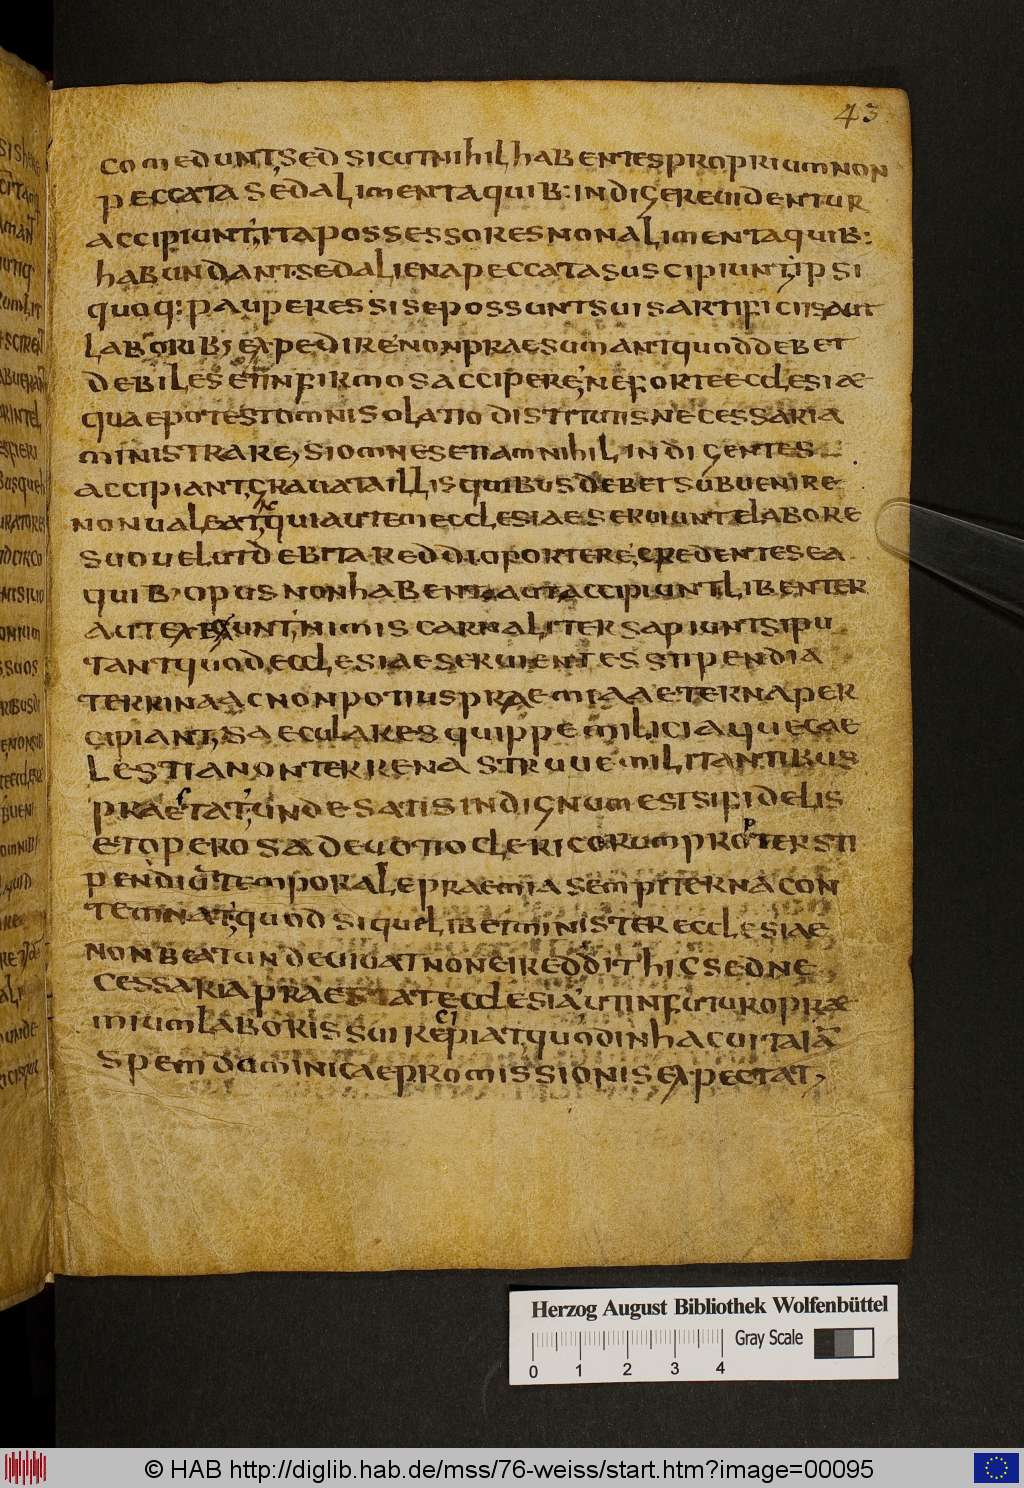 43
comedunt, sed sicut nihil habentes proprium non
peccata sed alimenta quib: indigere uidentur
accipiunt, ita possessores non alimenta quib:
habundant. sed aliena peccata suscipiunt, ipsi
quoq: pauperes si se possunt suis artificiis aut
laboribus expedire non praesumant quod debet
debiles et infirmos accipere, ne forte ecclesiæ
quae potest omni solatio distitutis necessaria
ministrare, si omnes etiam nihil indigentes
accipiant, grauata illis quibus debet subuenire
non ualeat, qui autem ecclesiae seruiunt et labore
suo uelut debita reddi oportere, credentes ea
quib, opus non habent aut accipiunt libenter
aut exigunt, nimis carnaliter sapiunt si pu
tant quod ecclesiae seruientes stipendia
terrina ac non potius praemia aeterna per
cipiant, saeculares quippe milicia que cae
lestia non terrena strenue militantibus
praestat, unde satis indignum est si fidelis
et operosa deuotio clericorum propter sti
pendiū temporale praemia sempiterna con
temnat, quod si quelibet minister ecclesiae
non beat unde uiuat non ei reddit hic sed ne
cessaria praestat ecclesia, ut in futuro præ
mium laboris sui recipiat, quod in hac uita iā
spem dominicae promissionis expectat,
Herzog August Bibliothek Wolfenbüttel
Gray Scale
0 1 2 3 4
© HAB http://diglib.hab.de/mss/76-weiss/start.htm?image=00095